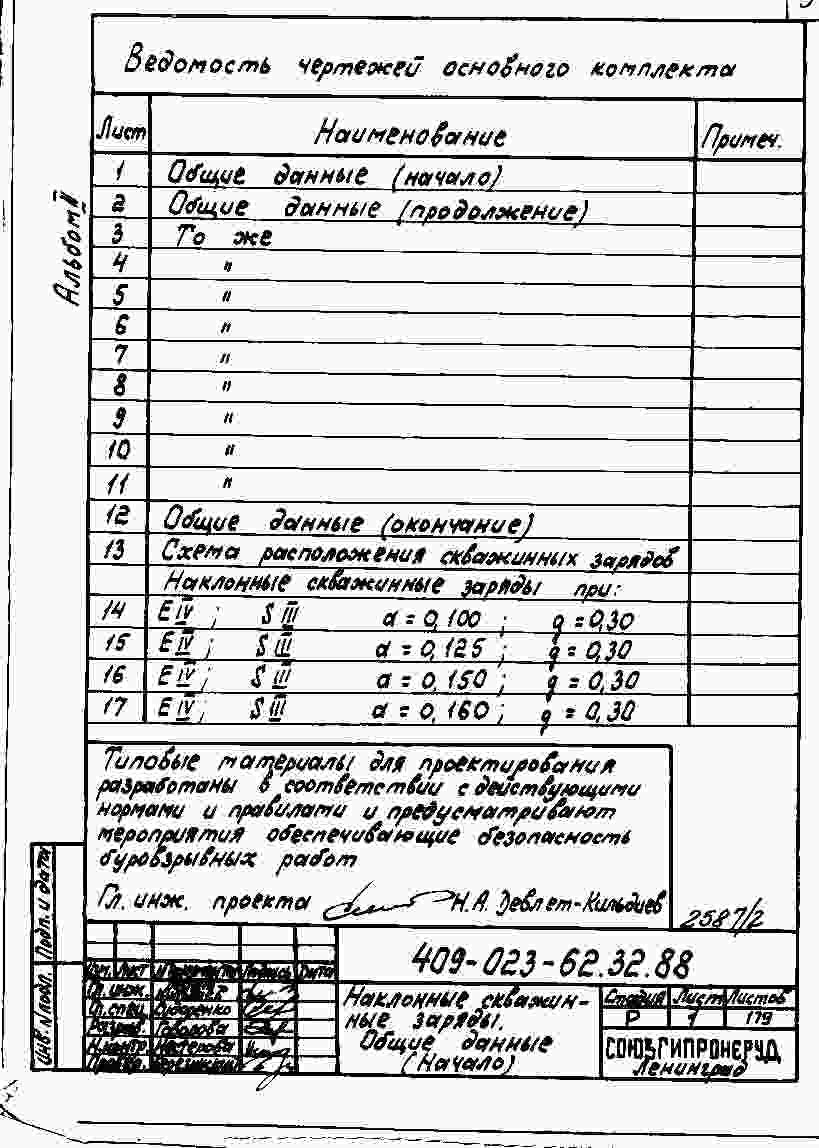 Ведомость чертежей основного комплекта
Лист Наименование Примеч.
1 Общие данные (начало)
2 Общие данные (продолжение)
3 То же
4 "
5 "
6 "
7 "
8 "
9 "
10 "
11 "
12 Общие данные (окончание)
13 Схема расположения скважинных зарядов
Наклонные скважинные заряды при:
14 E IV; S III d = 0,100; q = 0,30
15 E IV; S III d = 0,125; q = 0,30
16 E IV; S III d = 0,150; q = 0,30
17 E IV; S III d = 0,160; q = 0,30
Альбом II
Типовые материалы для проектирования
разработаны в соответствии с действующими
нормами и правилами и предусматривают
мероприятия обеспечивающие безопасность
буровзрывных работ
Гл. инж. проекта Н.А. Девлет-Кильдиев
2587/2
409-023-62.32.88
Изм. Лист № документа Подпись Дата
Гл. инж.
Гл. спец. Сидоренко
Разраб. Говорова
Н. контр. Нестерова
Провер.
Наклонные скважин-
ные заряды.
Общие данные
(Начало)
Стадия Лист Листов
Р 1 179
СОЮЗГИПРОНЕРУД
Ленинград
Подп. и дата
Инв. № подл.